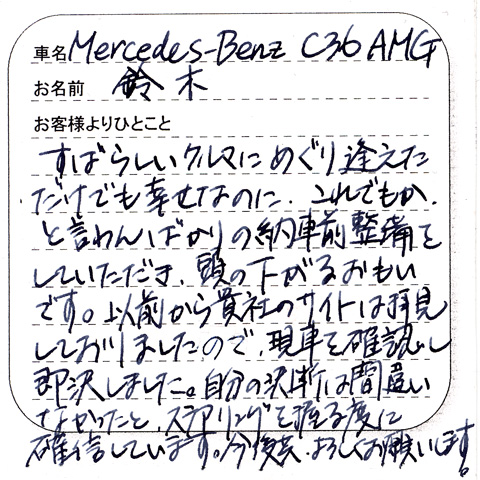 車名 Mercedes-Benz C36 AMG
お名前 鈴木
お客様よりひとこと
すばらしいクルマにめぐり逢えた
だけでも幸せなのに、これでもか、
と言わんばかりの納車前整備を
していただき、頭の下がるおもい
です。以前から貴社のサイトは拝見
しておりましたので、現車を確認し
即決しました。自分の決断は間違い
なかったと、ステアリングを握る度に
確信しています。今後共、よろしくお願いします。